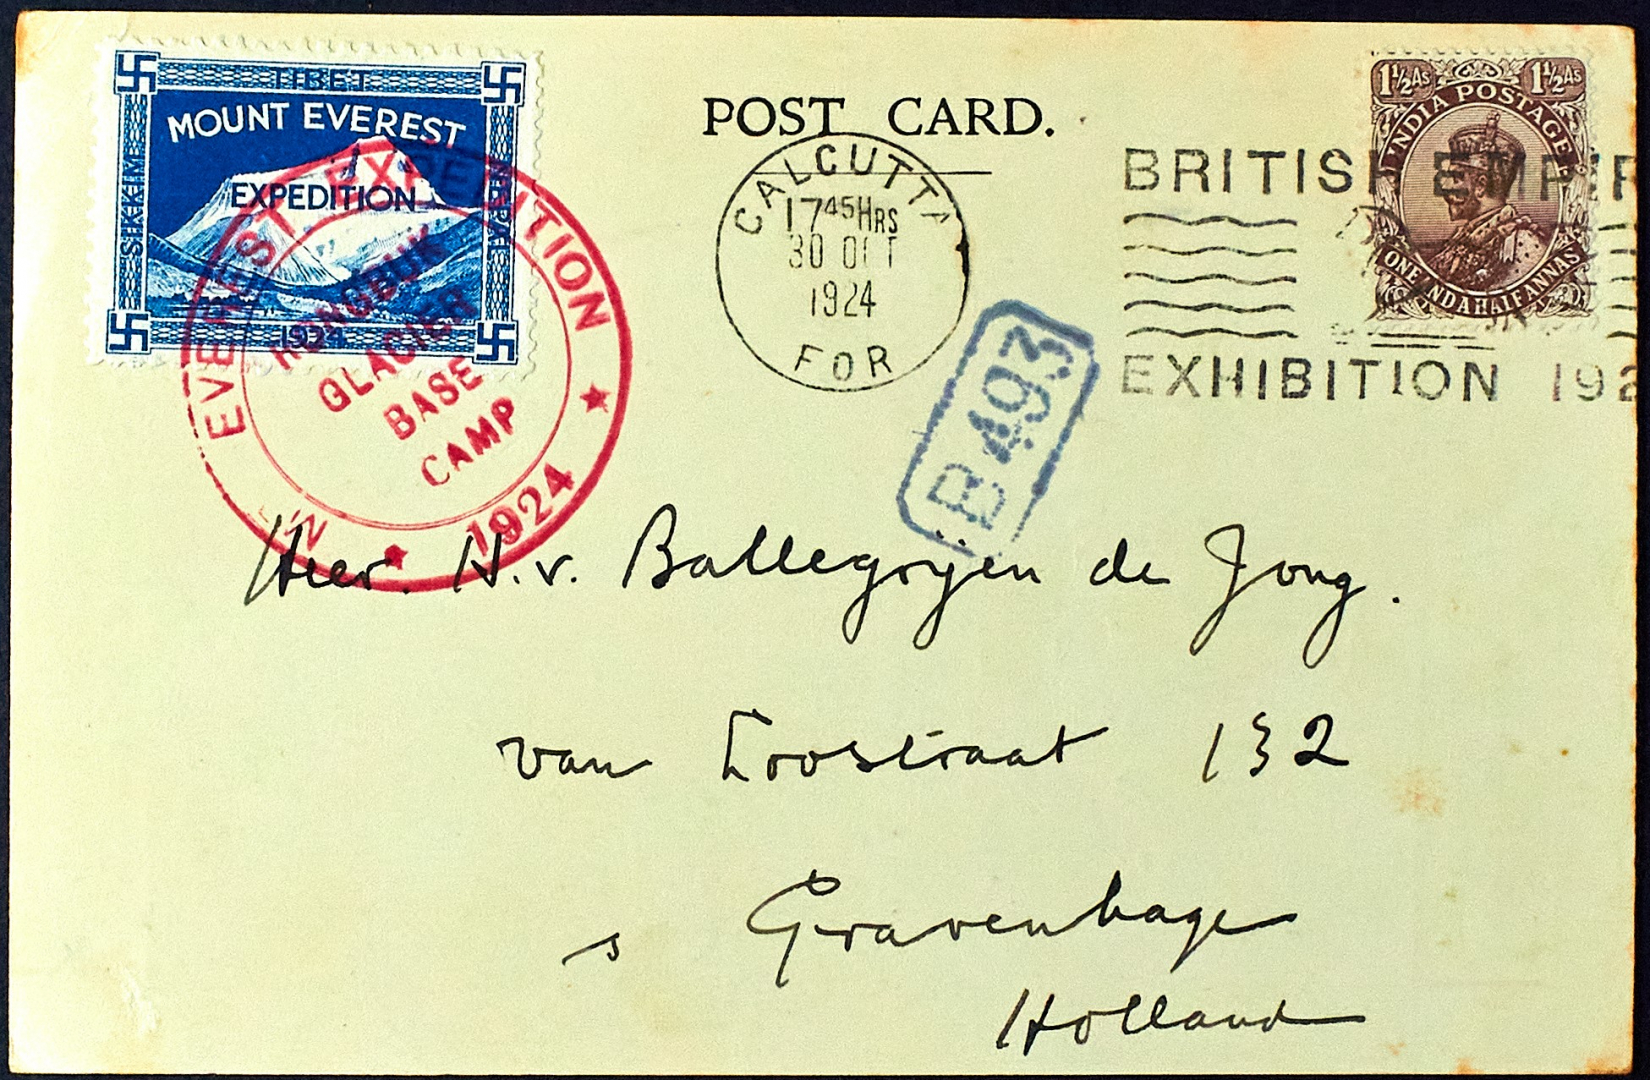 TIBET
MOUNT EVEREST
EXPEDITION
SIKKIM
NEPAL
1924
MT EVEREST EXPEDITION
1924
RONGBUK
GLACIER
BASE
CAMP
POST CARD.
CALCUTTA
17 45 HRS
30 OCT
1924
FOR
BRITISH EMPIR
EXHIBITION 192
1½ AS 1½ AS
INDIA POSTAGE
ONE AND A HALF ANNAS
B 493
Heer H. v. Ballegoijen de Jong.
van Loostraat 132
s Gravenhage
Holland